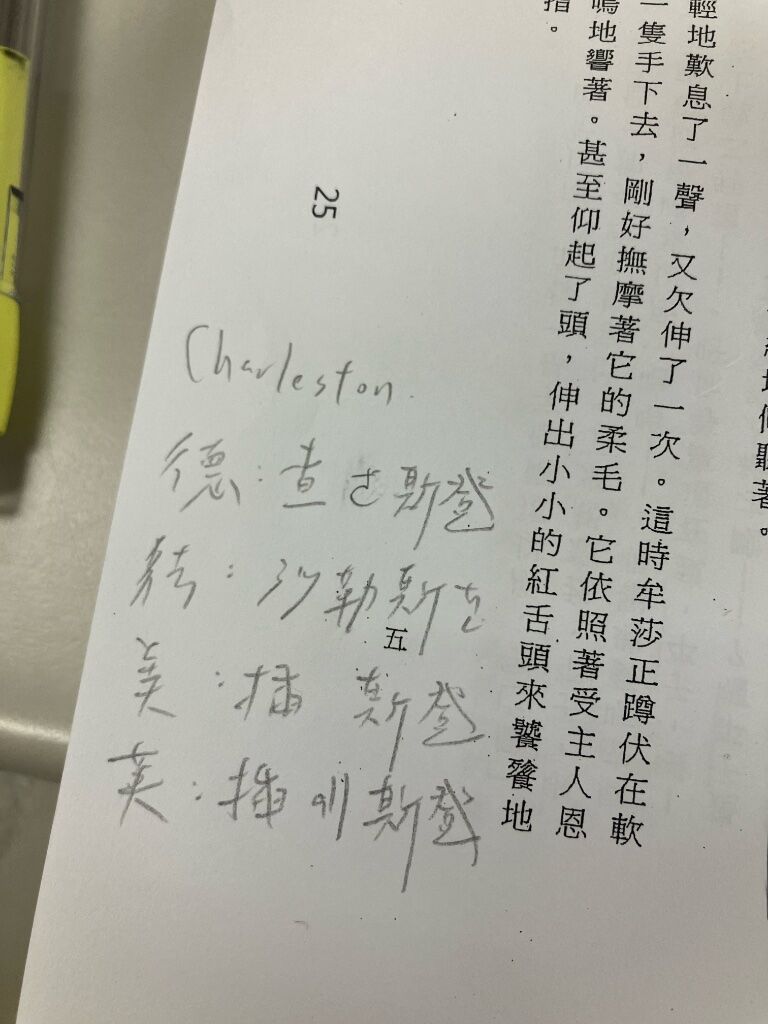 聽著。
輕地歎息了一聲，又欠伸了一次。這時牟莎正蹲伏在軟
一隻手下去，剛好撫摩著它的柔毛。它依照著受主人恩
地響著。甚至仰起了頭，伸出小小的紅舌頭來饕餮地
指。
五
25
Charleston
德：查 斯登
勒斯
美：插 斯登
英：插 斯登